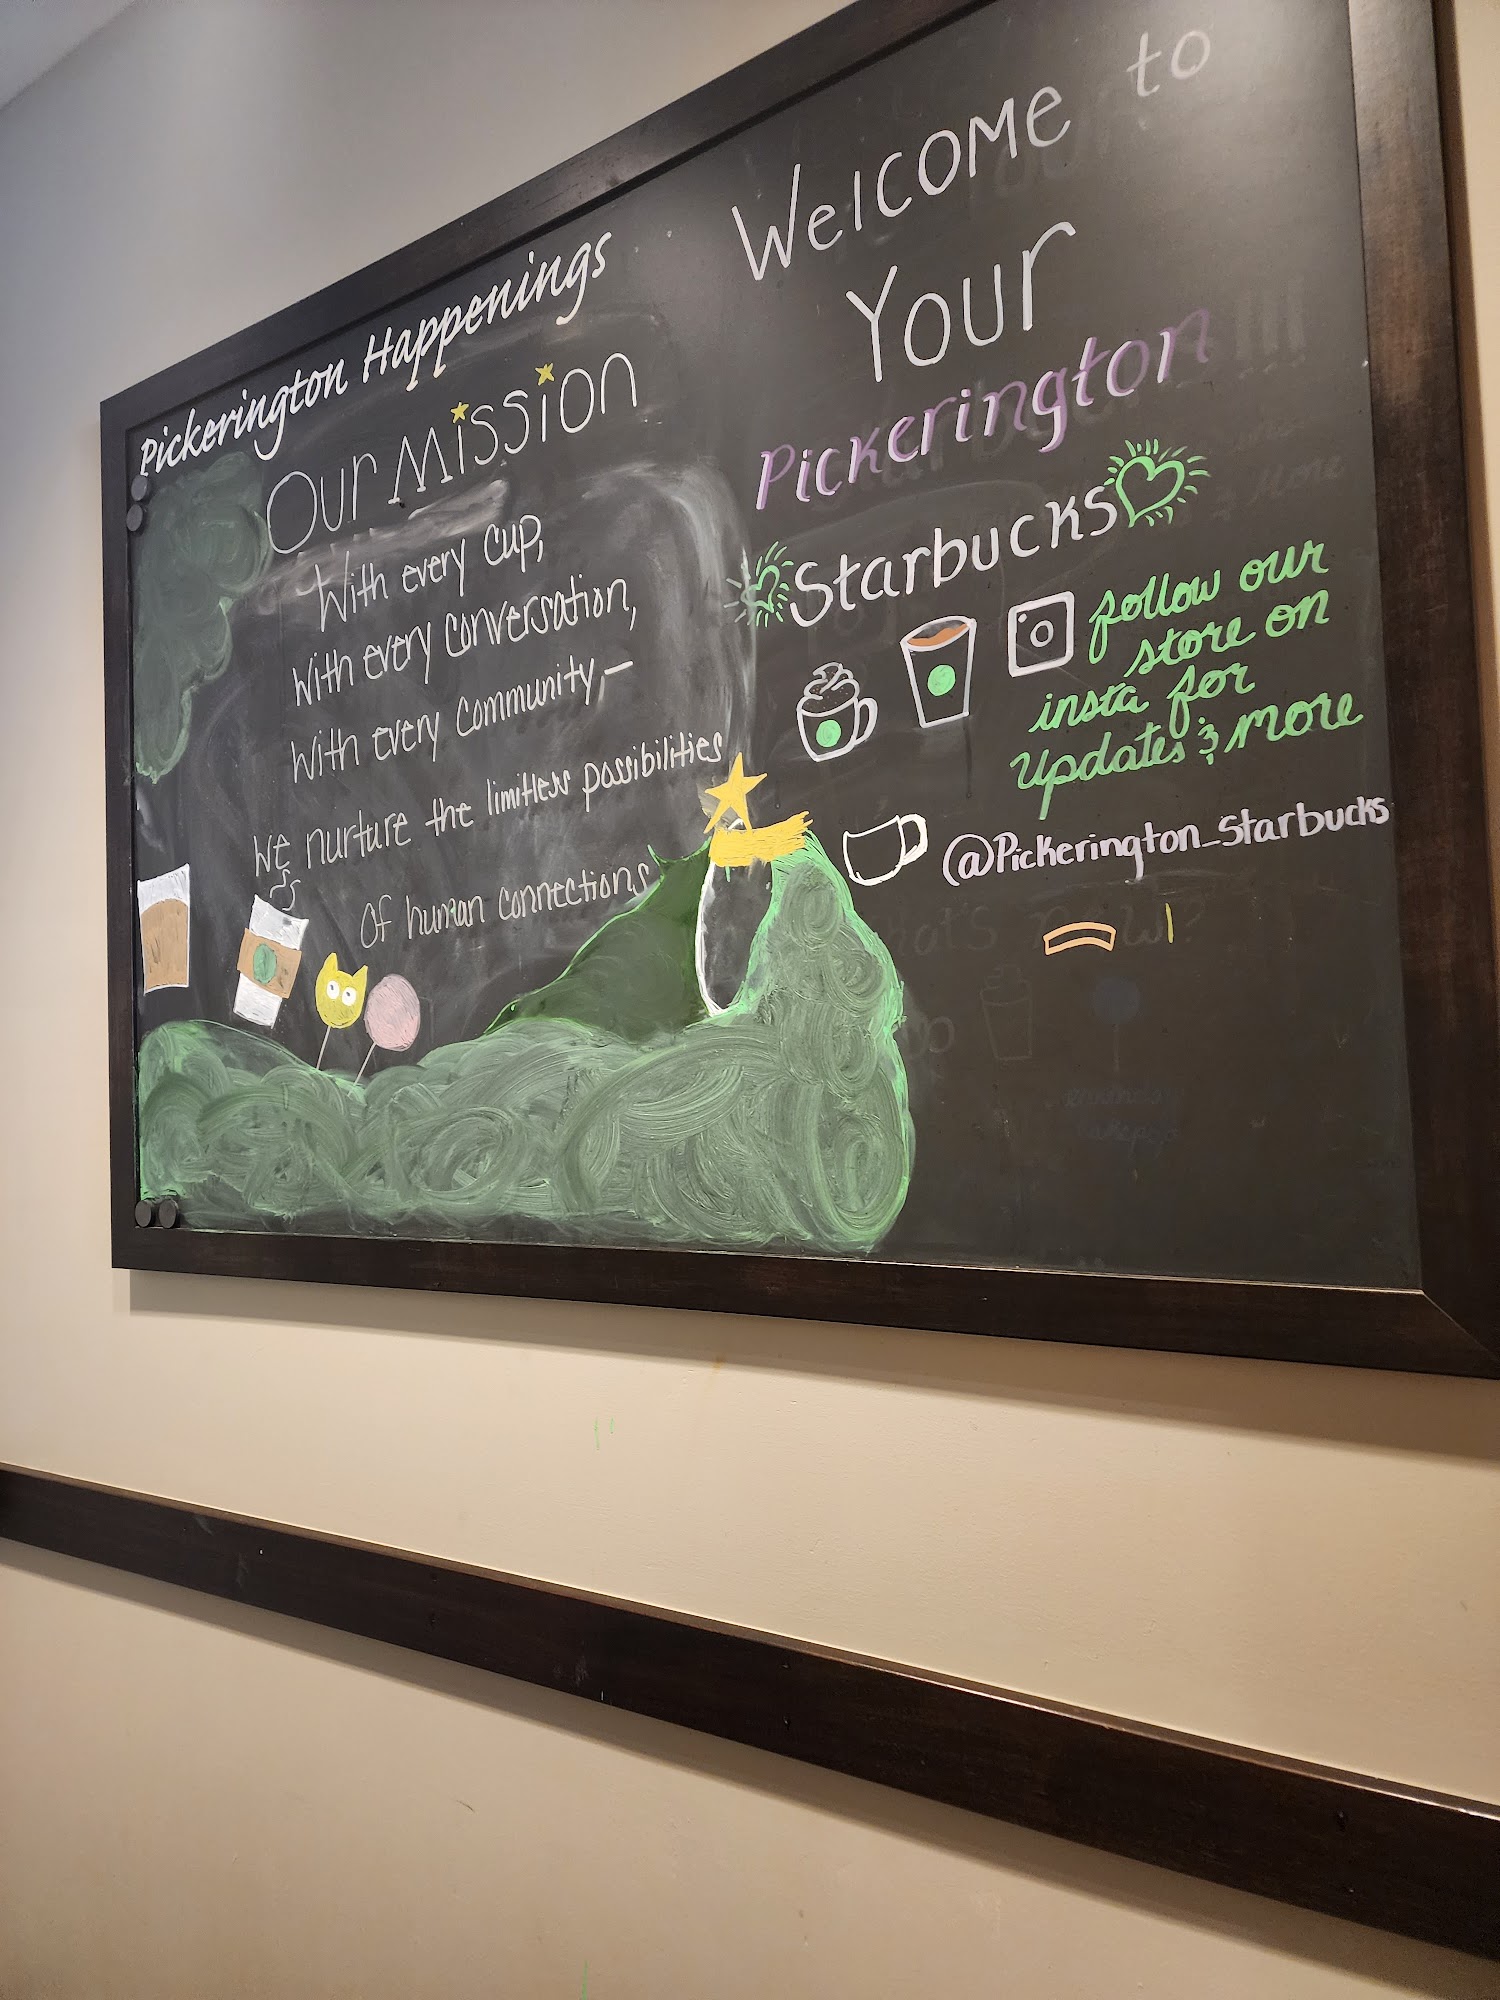 Pickerington Happenings
Our Mission
With every cup,
with every conversation,
with every community,—
we nurture the limitless possibilities
of human connections
Welcome to
Your
Pickerington
Starbucks
follow our
store on
insta for
Updates & more
@Pickerington_Starbucks